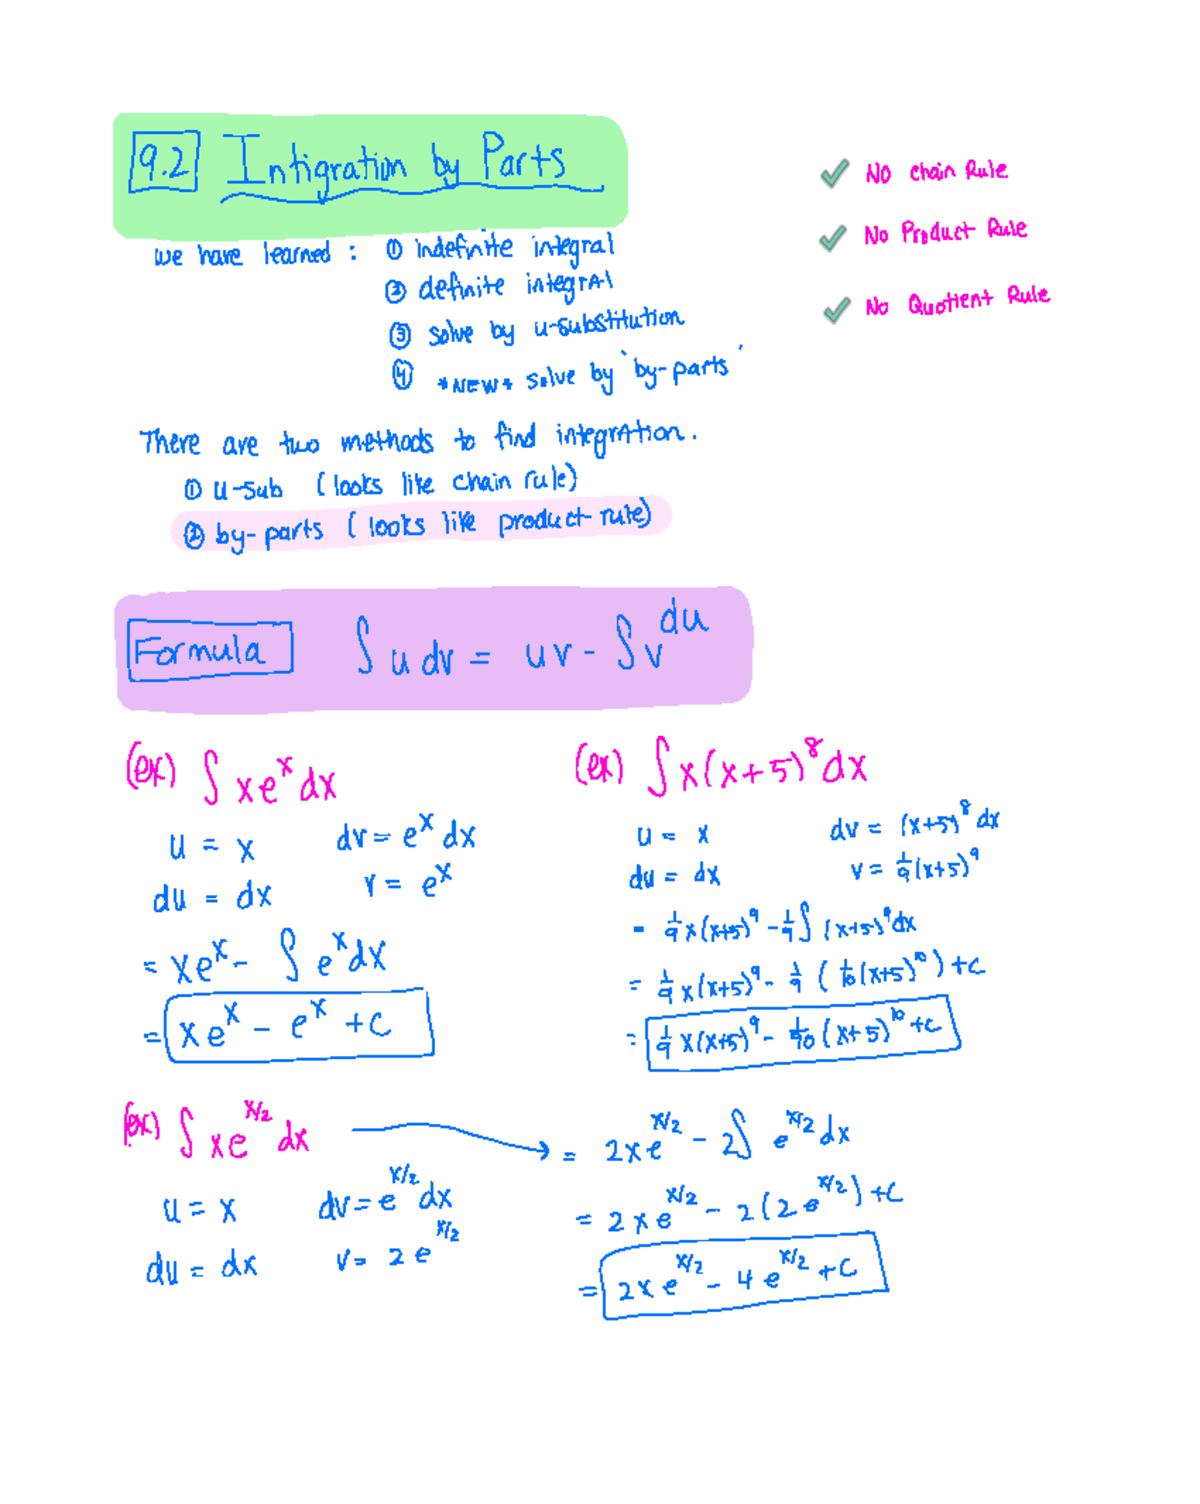 9.2 Intigration by Parts
✓ No chain Rule
✓ No Product Rule
✓ No Quotient Rule
we have learned : ① indefinite integral
② definite integrAl
③ solve by u-substitution
④ *NEW* solve by 'by-parts'
There are two methods to find integrAtion.
① u-sub (looks like chain rule)
② by-parts (looks like product-rule)
Formula ∫ u dv = uv - ∫ v du
(ex) ∫ xe^x dx
u = x dv = e^x dx
du = dx v = e^x
= xe^x - ∫ e^x dx
= xe^x - e^x + c
(ex) ∫ x(x+5)^8 dx
u = x dv = (x+5)^8 dx
du = dx v = 1/9 (x+5)^9
= 1/9 x(x+5)^9 - 1/9 ∫ (x+5)^9 dx
= 1/9 x(x+5)^9 - 1/9 ( 1/10 (x+5)^10 ) + c
= 1/9 x(x+5)^9 - 1/90 (x+5)^10 + c
(ex) ∫ xe^x/2 dx
u = x dv = e^x/2 dx
du = dx v = 2e^x/2
= 2xe^x/2 - 2∫ e^x/2 dx
= 2xe^x/2 - 2(2e^x/2) + c
= 2xe^x/2 - 4e^x/2 + c